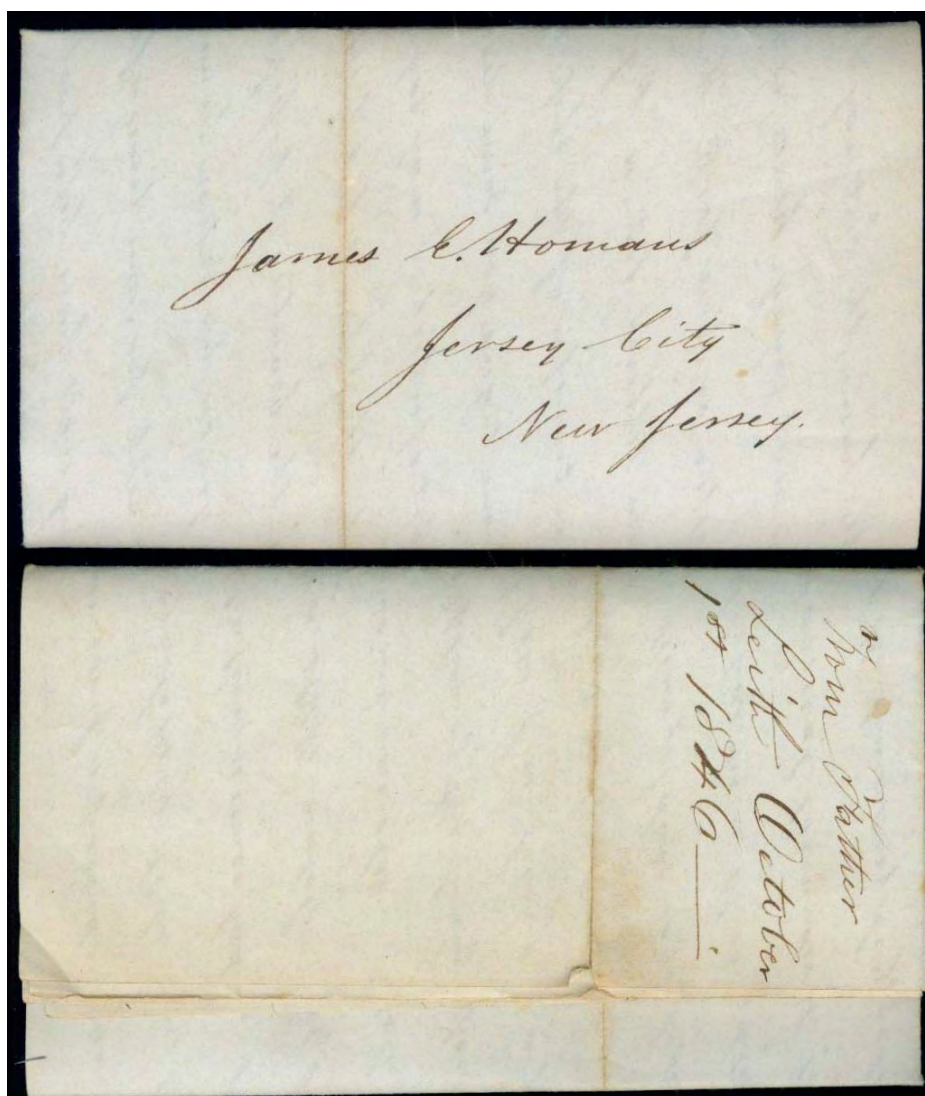 James E. Homans
Jersey City
New Jersey.
From Father
Leith October
1st 1846